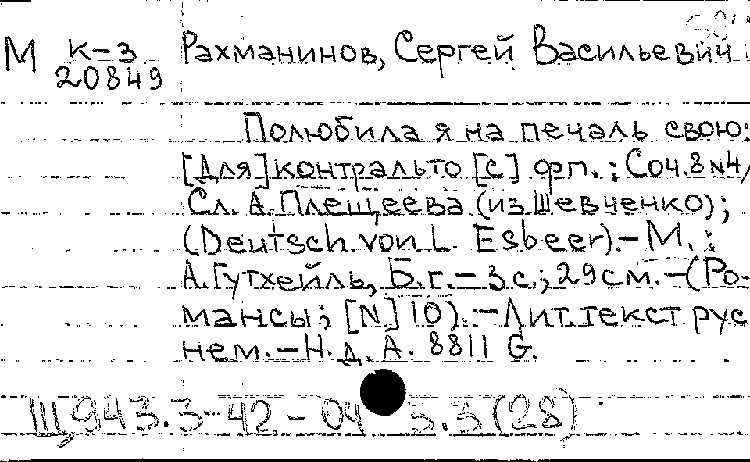 М К-3 Рахманинов, Сергей Васильевич
20849
Полюбила я на печаль свою:
[Для] контральто [с] фп.; Соч. 8 №4/
Сл. А. Плещеева (из Шевченко);
(Deutsch. von L. Esbeer).-М.:
А. Гутхейль, Б.г.-3с.; 29см.-(Ро-
мансы; [N] 10).-Лит. текст рус
нем.-Н.д. А. 8811 G.
Щ943.3-42-04 5.3(28)